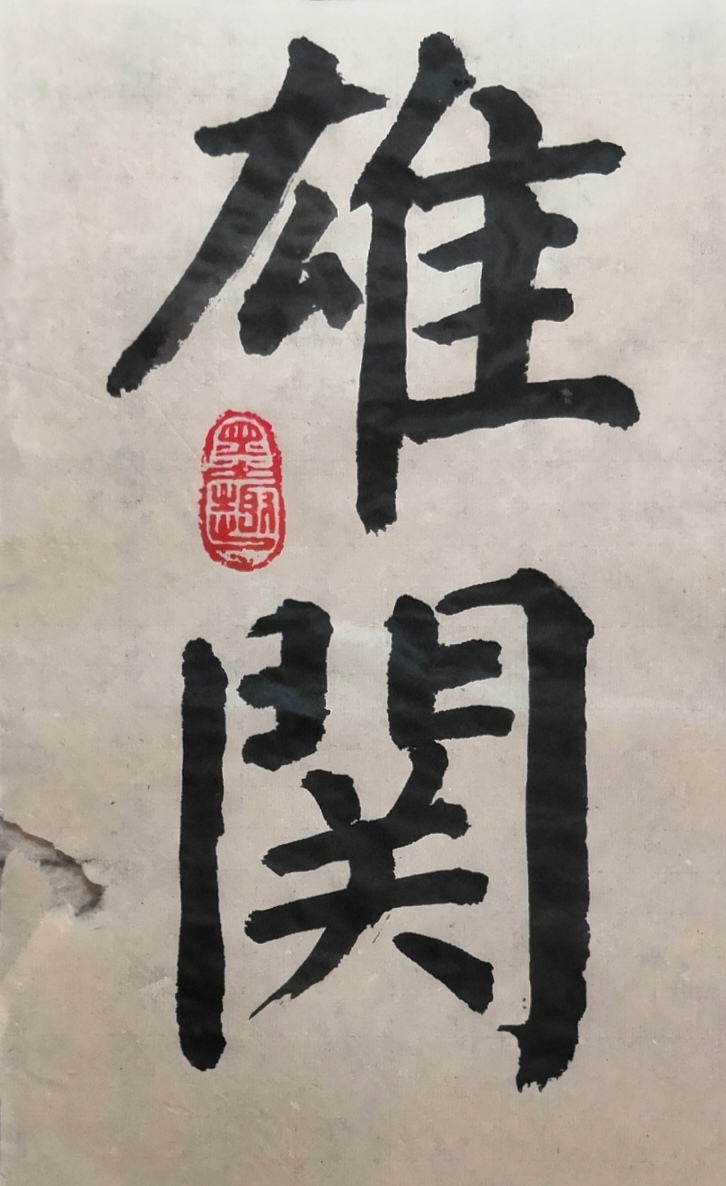 雄
関
墨趣